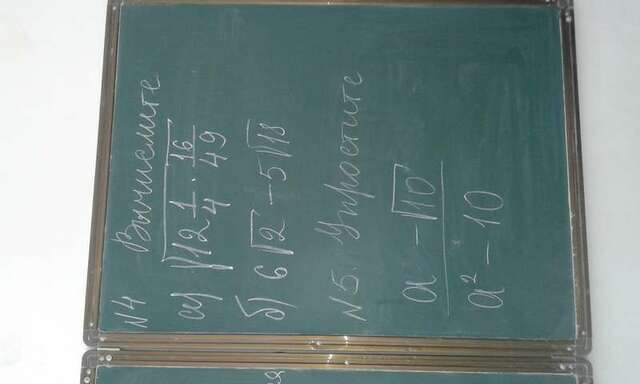 N4 Вычислите
а) √(12 1/4 · 16/49)
б) 6√2 − 5√18
N5. Упростите
(a − √10)/(a² − 10)